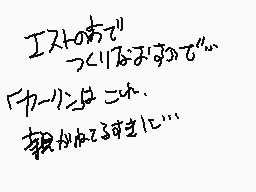 エストのあで
つくりなおすので…
「カーソンは これ.
親がねてるすきに…